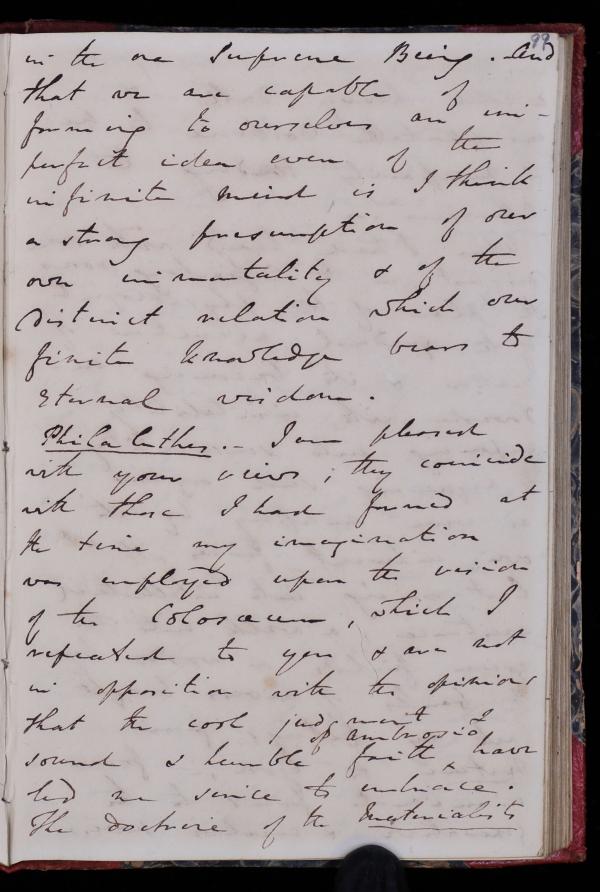 99
in the one Supreme Being. And
that we are capable of
forming to ourselves an im-
perfect idea even of the
infinite mind is I think
a strong presumption of our
own immortality & of the
distinct relation which our
finite knowledge bears to
eternal wisdom.
Philalethes. – I am pleased
with your views; they coincide
with those I had formed at
the time my imagination
was employed upon the vision
of the Colosaeum, which I
repeated to you & are not
in opposition with the opinions
that the cool judgment &
of Ambrosio
sound & humble faith have
led me since to embrace.
The doctrine of the Materialists